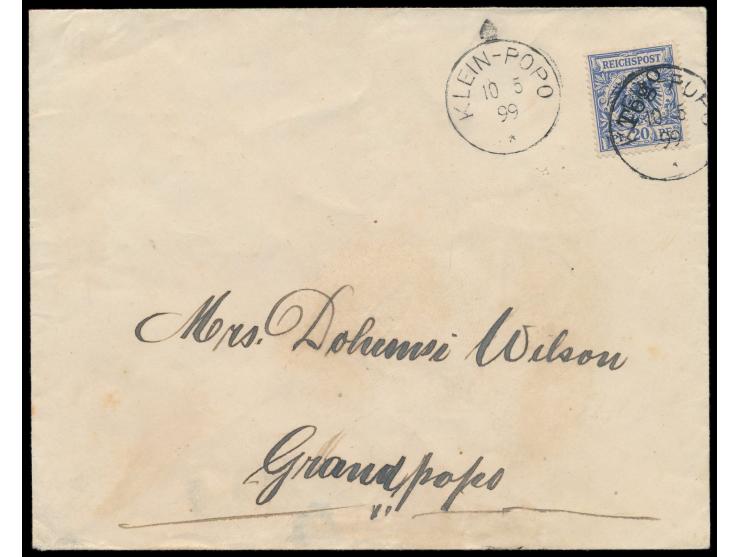 KLEIN-POPO
10 5
99
*
REICHSPOST
TOGO
20
10 5
99
Mrs. Dohumsi Wilson
Grandpopo